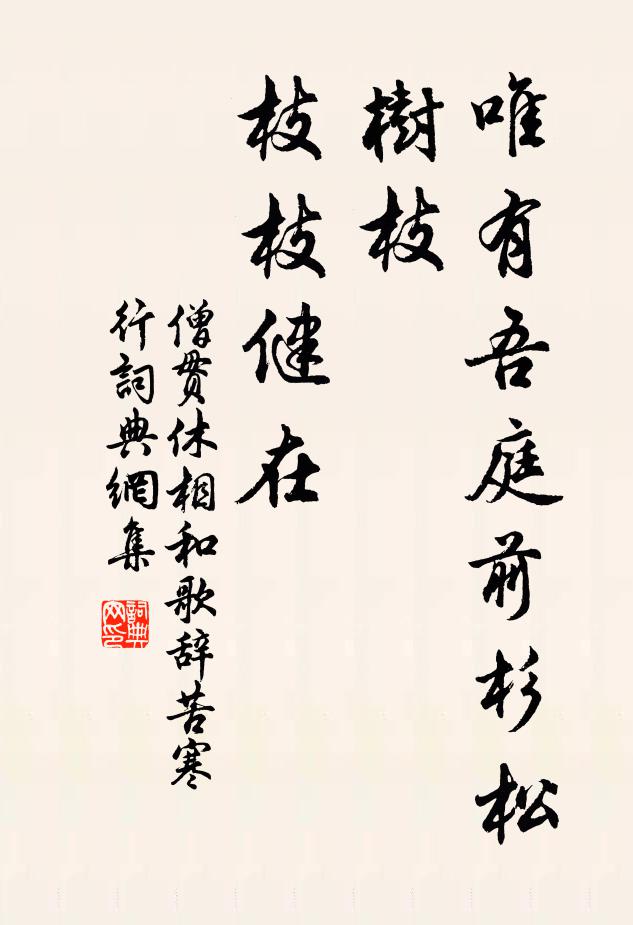 唯有吾庭前杉松
樹枝
枝枝健在
僧貫休相和歌辞苦寒
行詞典網集
詞典
网印